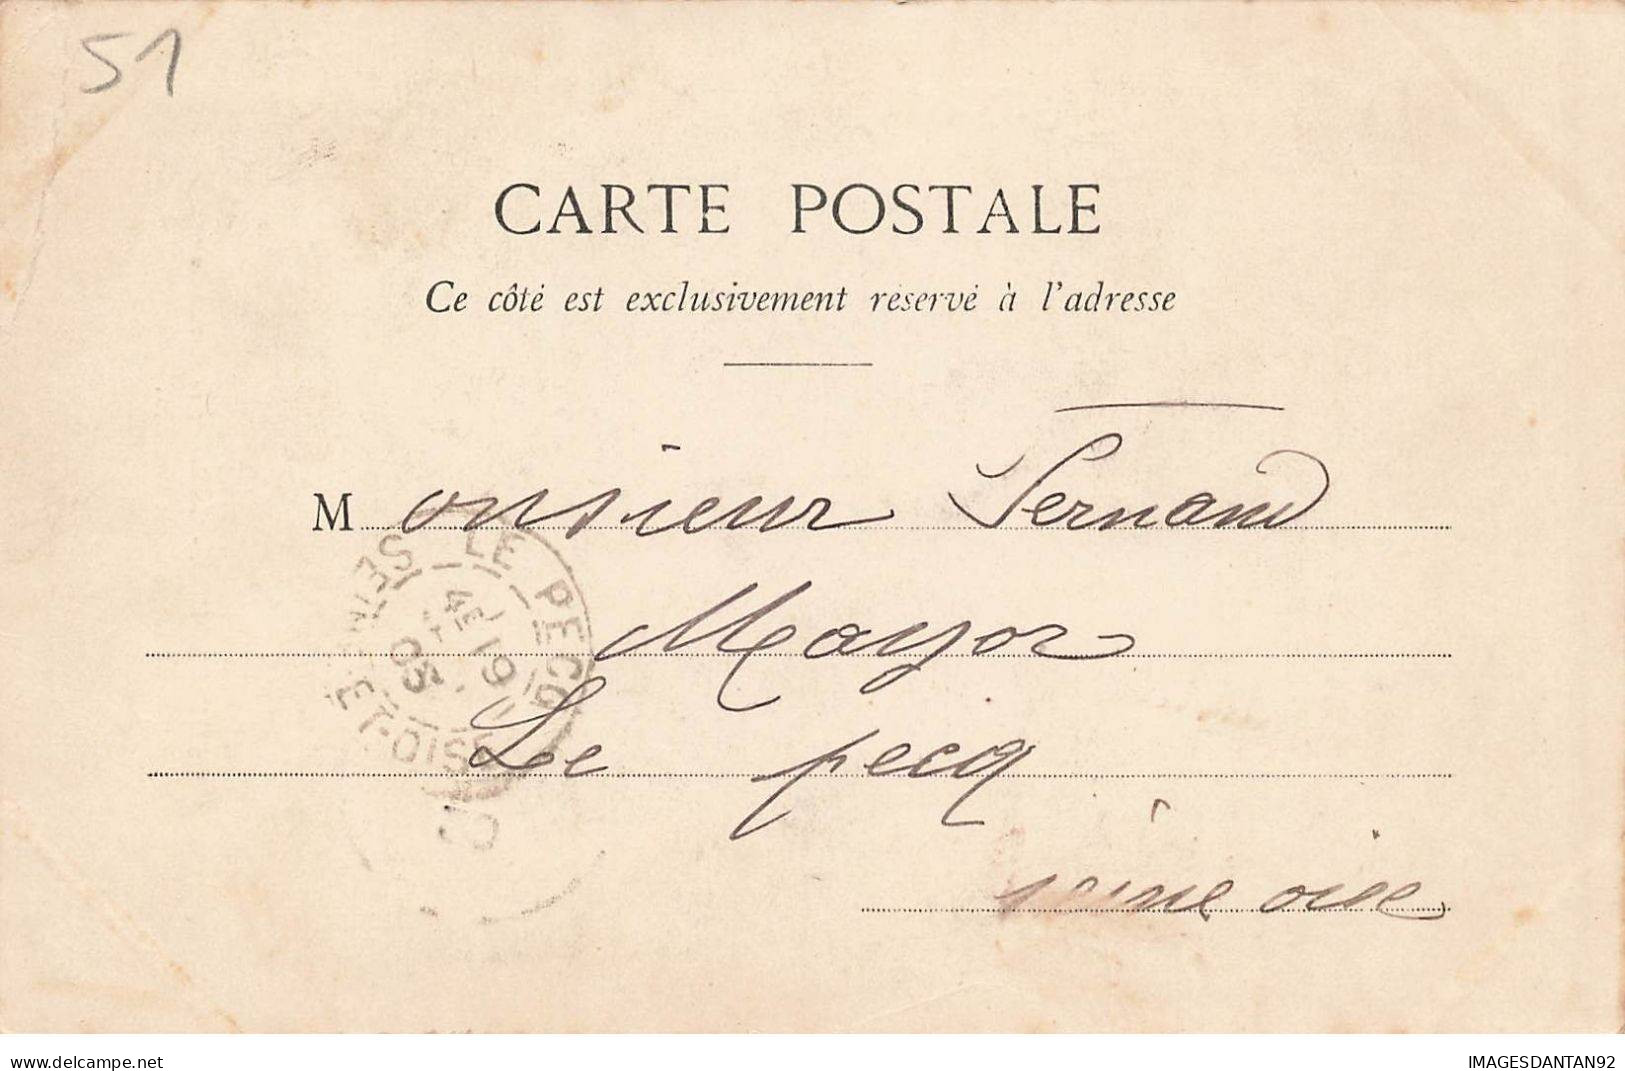 51
CARTE POSTALE
Ce côté est exclusivement réservé à l'adresse
Monsieur Fernand
Mayor
Le pecq
seine oise
LE PECQ
SEINE-ET-OISE
4E
19
03
delcampe.net
IMAGESDANTAN92